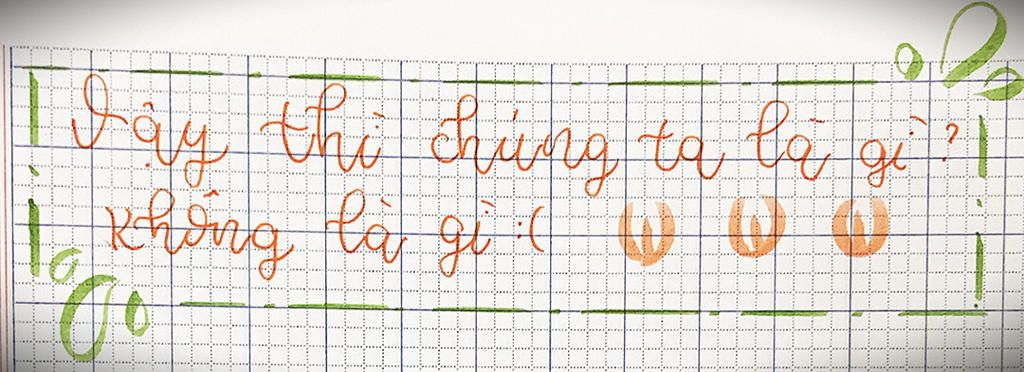 Vậy thì chúng ta là gì?
Không là gì :(